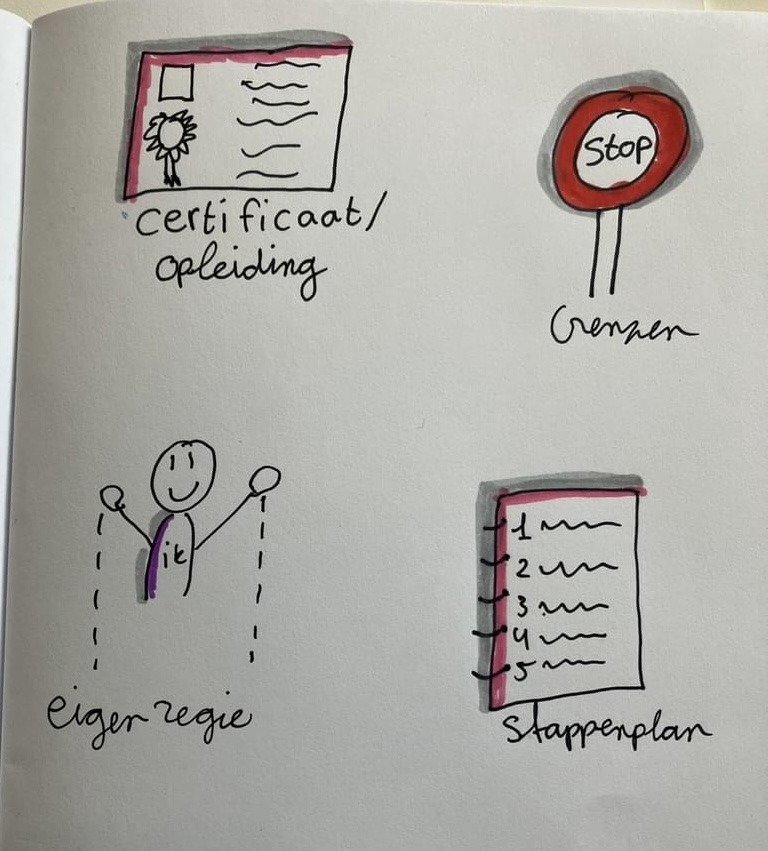 certificaat/
opleiding
Stop
Grenzen
ik
eigen regie
1
2
3
4
5
stappenplan